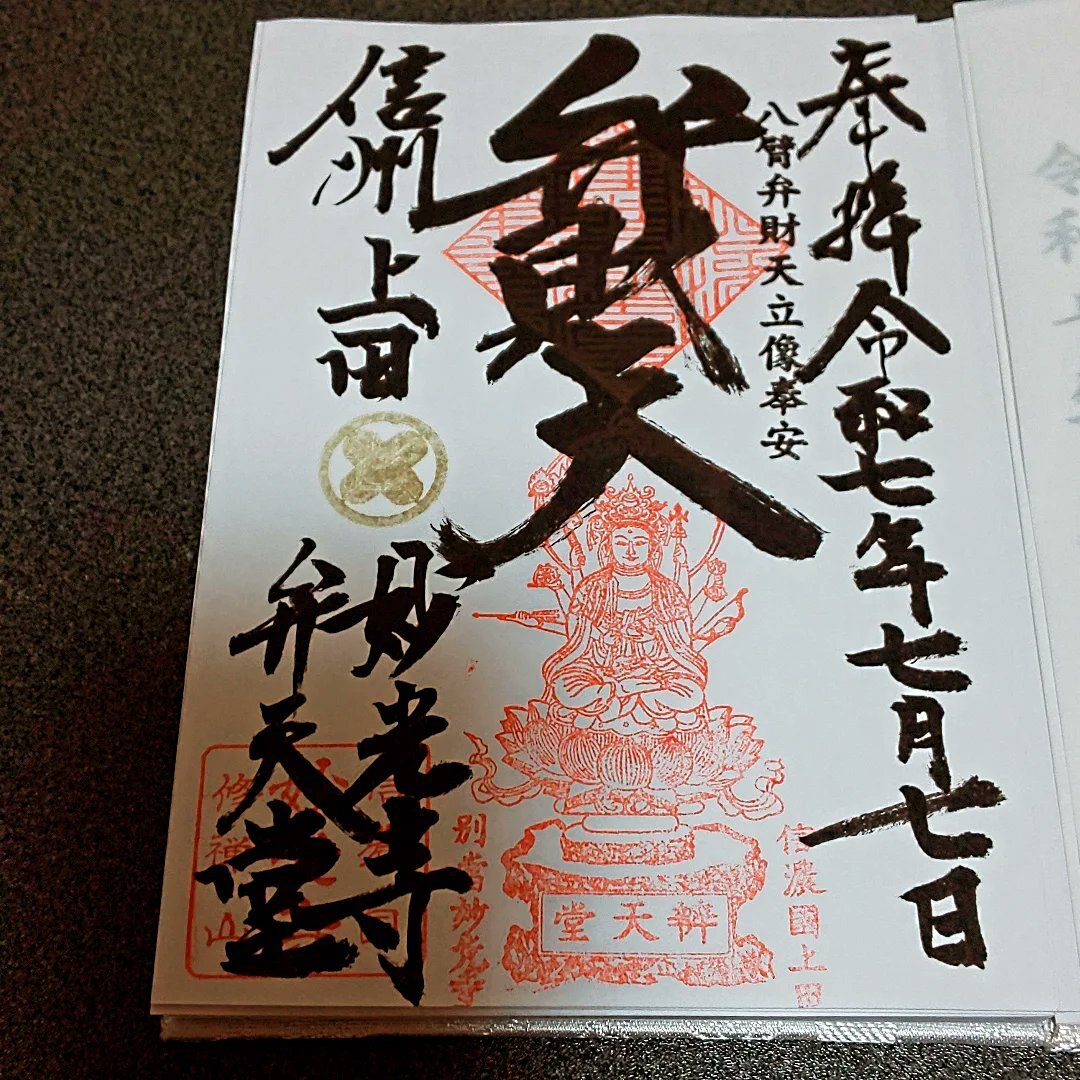 奉拝 令和七年七月七日
八臂弁財天立像奉安
弁財天
信州上田
妙光寺
弁天堂
信濃國上田
辨天堂
別當妙光寺
修禅山
令和